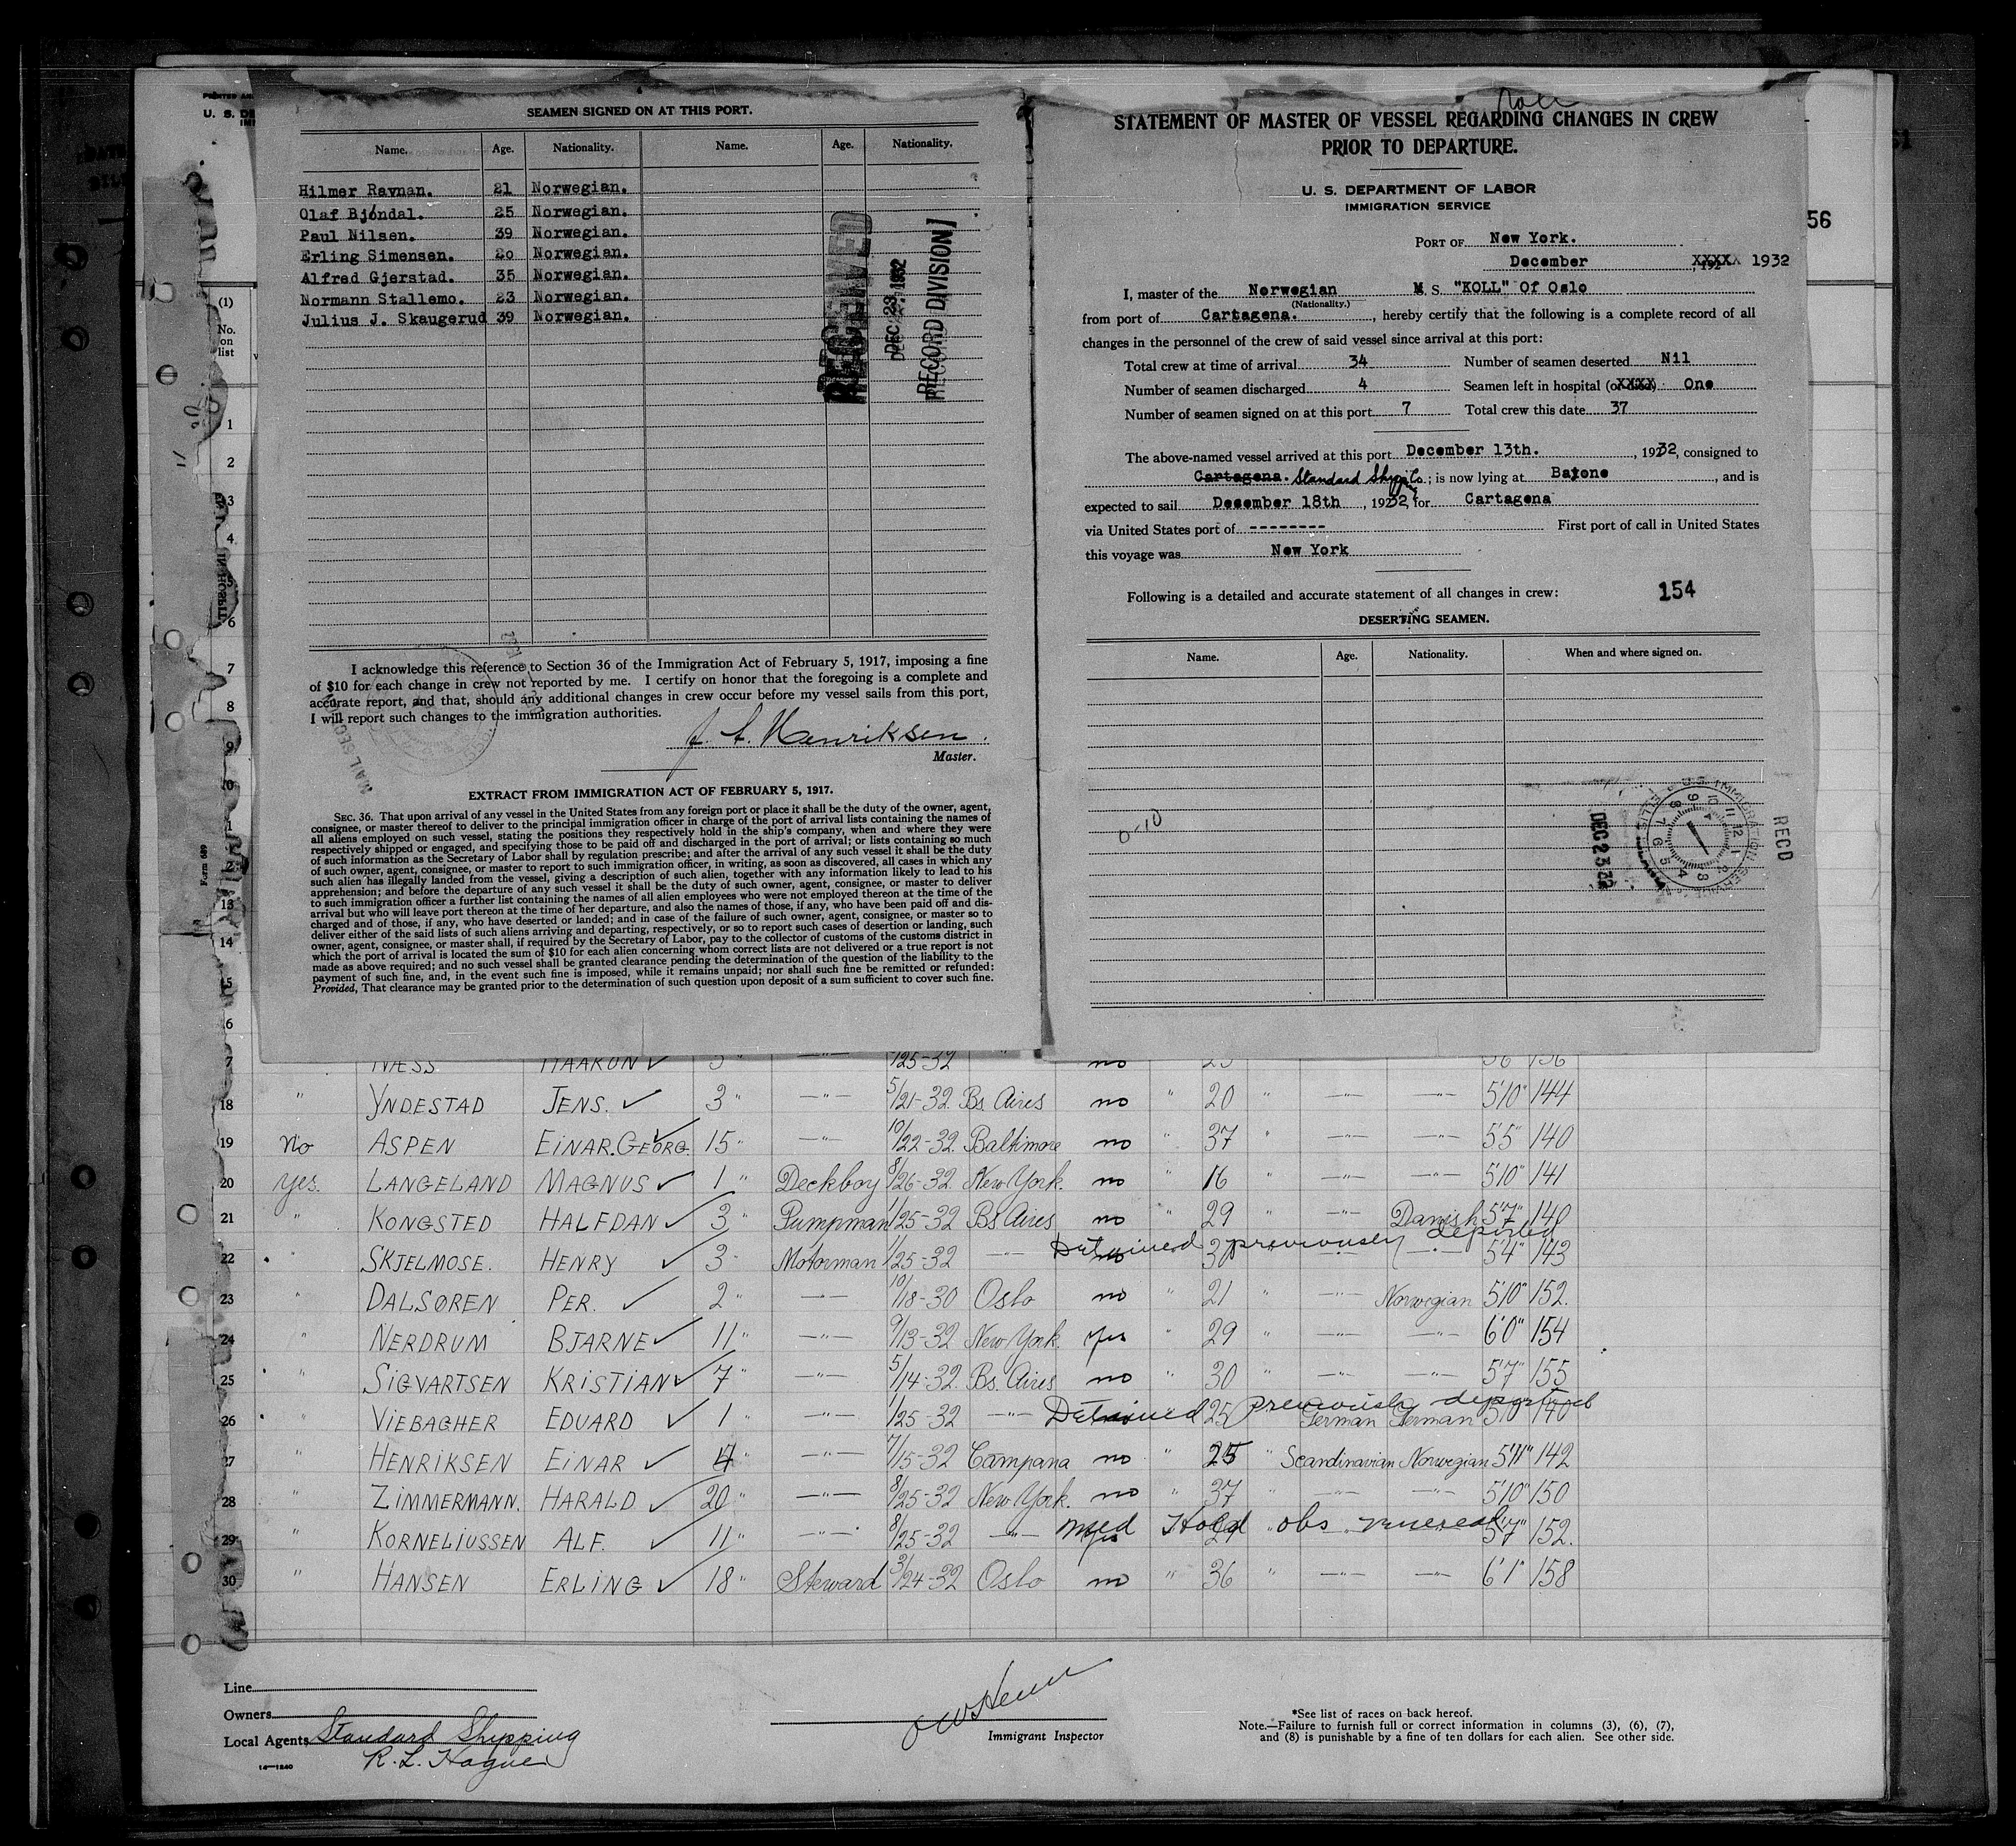 SEAMEN SIGNED ON AT THIS PORT.
Name. Age. Nationality. Name. Age. Nationality.
Hilmer Ravnan. 21 Norwegian.
Olaf Bjöndal. 25 Norwegian.
Paul Nilsen. 39 Norwegian.
Erling Simensen. 20 Norwegian.
Alfred Gjerstad. 35 Norwegian.
Normann Stallemo. 23 Norwegian.
Julius J. Skaugerud 39 Norwegian.
RECEIVED
DEC 23 1932
RECORD DIVISION
I acknowledge this reference to Section 36 of the Immigration Act of February 5, 1917, imposing a fine
of $10 for each change in crew not reported by me. I certify on honor that the foregoing is a complete and
accurate report, and that, should any additional changes in crew occur before my vessel sails from this port,
I will report such changes to the immigration authorities.
Henriksen.
Master.
EXTRACT FROM IMMIGRATION ACT OF FEBRUARY 5, 1917.
SEC. 36. That upon arrival of any vessel in the United States from any foreign port or place it shall be the duty of the owner, agent,
consignee, or master thereof to deliver to the principal immigration officer in charge of the port of arrival lists containing the names of
all aliens employed on such vessel, stating the positions they respectively hold in the ship's company, when and where they were
respectively shipped or engaged, and specifying those to be paid off and discharged in the port of arrival; or lists containing so much
of such information as the Secretary of Labor shall by regulation prescribe; and after the arrival of any such vessel it shall be the duty
of such owner, agent, consignee, or master to report to such immigration officer, in writing, as soon as discovered, all cases in which any
such alien has illegally landed from the vessel, giving a description of such alien, together with any information likely to lead to his
apprehension; and before the departure of any such vessel it shall be the duty of such owner, agent, consignee, or master to deliver
to such immigration officer a further list containing the names of all alien employees who were not employed thereon at the time of the
arrival but who will leave port thereon at the time of her departure, and also the names of those, if any, who have been paid off and dis-
charged and of those, if any, who have deserted or landed; and in case of the failure of such owner, agent, consignee, or master so to
deliver either of the said lists of such aliens arriving and departing, respectively, or so to report such cases of desertion or landing, such
owner, agent, consignee, or master shall, if required by the Secretary of Labor, pay to the collector of customs of the customs district in
which the port of arrival is located the sum of $10 for each alien concerning whom correct lists are not delivered or a true report is not
made as above required; and no such vessel shall be granted clearance pending the determination of the question of the liability to the
payment of such fine, and, in the event such fine is imposed, while it remains unpaid; nor shall such fine be remitted or refunded:
Provided, That clearance may be granted prior to the determination of such question upon deposit of a sum sufficient to cover such fine.
STATEMENT OF MASTER OF VESSEL REGARDING CHANGES IN CREW
PRIOR TO DEPARTURE.
U. S. DEPARTMENT OF LABOR
IMMIGRATION SERVICE
PORT OF New York.
December , 192 XXXXX 1932
I, master of the Norwegian M. S. "KOLL" Of Oslo
(Nationality.)
from port of Cartagena. , hereby certify that the following is a complete record of all
changes in the personnel of the crew of said vessel since arrival at this port:
Total crew at time of arrival 34 Number of seamen deserted Nil
Number of seamen discharged 4 Seamen left in hospital (or died) One
Number of seamen signed on at this port 7 Total crew this date 37
The above-named vessel arrived at this port December 13th. , 1932, consigned to
Cartagena. Standard Shipping Co. ; is now lying at Bayone , and is
expected to sail December 18th , 1932, for Cartagena
via United States port of -------- First port of call in United States
this voyage was New York
Following is a detailed and accurate statement of all changes in crew: 154
DESERTING SEAMEN.
Name. Age. Nationality. When and where signed on.
0-10
DEC 23 32
U.S. IMMIGRATION SERVICE
RECD
56
(1)
No.
on
list
1
2
3
4
5
6
7
8
9
13
14
Form 689
NÆSS HAAKON 3 " —"— 25-32 no 156
18 " YNDESTAD JENS. 3 " —"— 5/21-32. Bs. Aires no " 20 " —"— —"— 5'10" 144
19 no ASPEN EINAR.GEORG. 15 " —"— 10/22-32. Baltimore no " 37 " —"— —"— 5'5" 140
20 yes. LANGELAND MAGNUS 1 " Deckboy 8/26-32. New York. no " 16 —"— —"— 5'10" 141
21 " KONGSTED HALFDAN 3 " Pumpman 1/25-32 Bs Aires no " 29 " —"— Danish 5'7" 140
22 " SKJELMOSE. HENRY 3 " Motorman 1/25-32 —"— Detained previously deported 30 —"— 5'4" 143
23 " DALSØREN PER. 2 " —"— 10/18-30 Oslo no " 21 " —"— Norwegian 5'10" 152.
24 " NERDRUM BJARNE 11 " —"— 9/13-32 New York. yes " 29 " —"— —"— 6'0" 154
25 " SIGVARTSEN KRISTIAN 7 " —"— 5/14-32. Bs. Aires no " 30 —"— —"— 5'7" 155
26 " VIEBAGHER EDUARD 1 " —"— 1/25-32 —"— Detained previously deported 25 German German 5'10" 140
27 " HENRIKSEN EINAR 4 " —"— 7/15-32 Campana no " 25 " Scandinavian Norwegian 5'11" 142
28 " ZIMMERMANN. HARALD 20 " —"— 8/25-32 New York. no " 37 " —"— —"— 5'10" 150
29 " KORNELIUSSEN ALF. 11 " —"— 8/25-32 —"— med Hold obs venereal 5'7" 152.
30 " HANSEN ERLING 18 " Steward 3/24-32 Oslo no " 36 " —"— —"— 6'1" 158
Line
Owners
Local Agents Standard Shipping
R. L. Hague
16—1240
Immigrant Inspector
*See list of races on back hereof.
Note.—Failure to furnish full or correct information in columns (3), (6), (7),
and (8) is punishable by a fine of ten dollars for each alien. See other side.